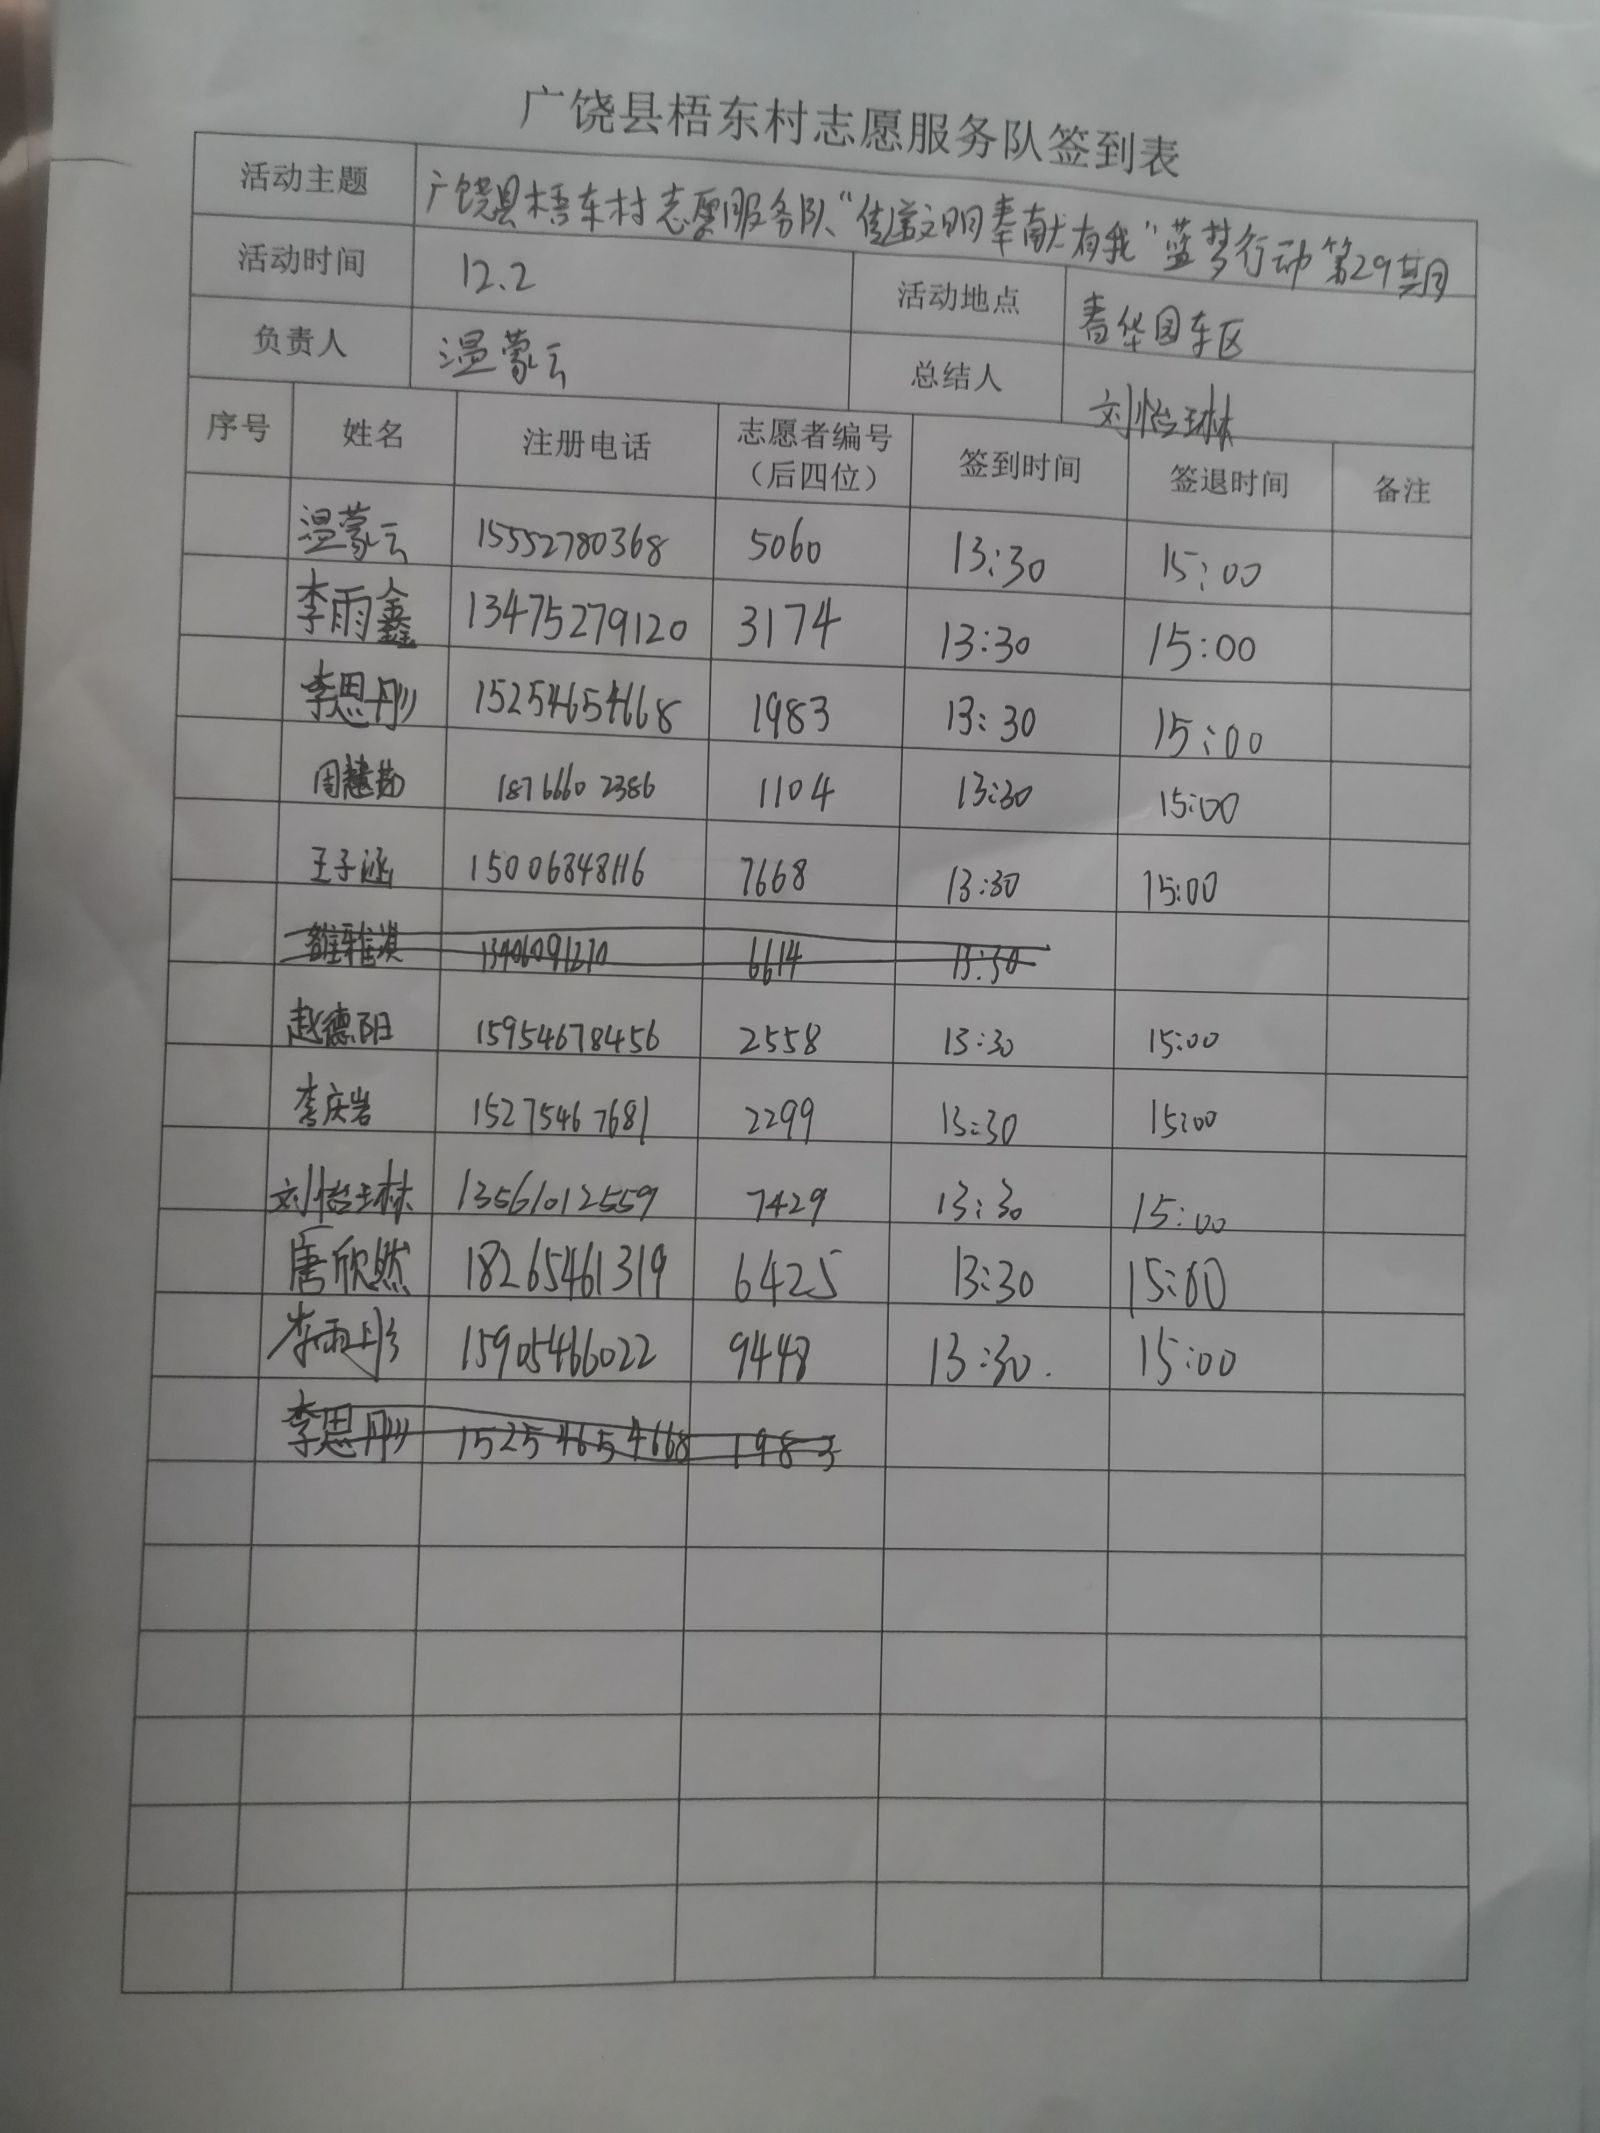 广饶县梧东村志愿服务队签到表
活动主题 广饶县梧东村志愿服务队“传递文明奉献有我”蓝梦行动第29期
活动时间 12.2 活动地点 春华园东区
负责人 温蒙云 总结人 刘怡琳
序号 姓名 注册电话 志愿者编号（后四位） 签到时间 签退时间 备注
温蒙云 15552780368 5060 13:30 15:00
李雨鑫 13475279120 3174 13:30 15:00
李思彤 15254654668 1983 13:30 15:00
周慧茹 18766602386 1104 13:30 15:00
王子涵 15006848116 7668 13:30 15:00
13406091210 6614 13:30
赵德阳 15954678456 2558 13:30 15:00
李庆岩 15275467681 2299 13:30 15:00
刘怡琳 13561012559 7429 13:30 15:00
唐欣然 18265461319 6425 13:30 15:00
李雨彤 15905466022 9448 13:30. 15:00
李思彤 15254654668 1983